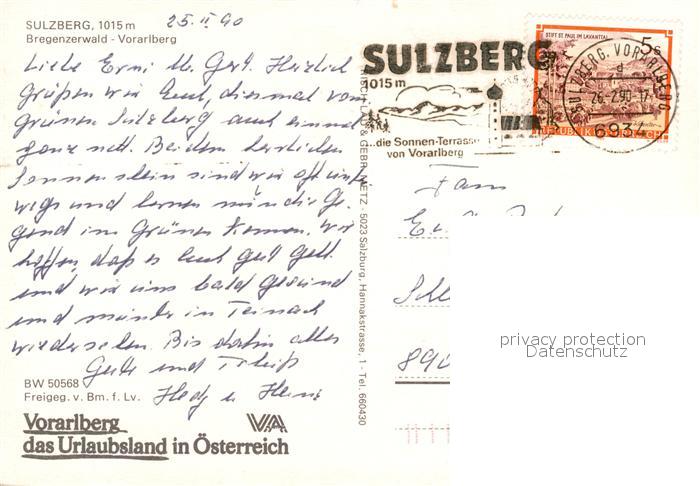 SULZBERG, 1015 m
Bregenzerwald - Vorarlberg
25. II 90
Liebe Erni u. Gert. Herzlich
grüßen wir Euch, diesmal vom
Grünen Sulzberg auch einmal
ganz nett. Bei dem herrlichen
Sonnenschein sind wir oft unter
wegs und lernen nun die Ge
gend im Grünen kennen. Wir
hoffen, daß es Euch gut geht
und wir uns bald gesund
und munter in Teinach
wiedersehen. Bis dahin alles
Gute und
Hedy u
BW 50568
Freigeg. v. Bm. f. Lv.
Vorarlberg
das Urlaubsland in Österreich
VA
& GEBR. METZ · 5023 Salzburg, Hannakstrasse, 1 - Tel. 660430
SULZBERG
1015 m
...die Sonnen-Terrasse
von Vorarlberg
STIFT ST. PAUL IM LAVANTTAL
5 S
REPUBLIK ÖSTERREICH
SULZBERG, VORARLBERG
26.-2.90-17
6934
Fam
890
privacy protection
Datenschutz